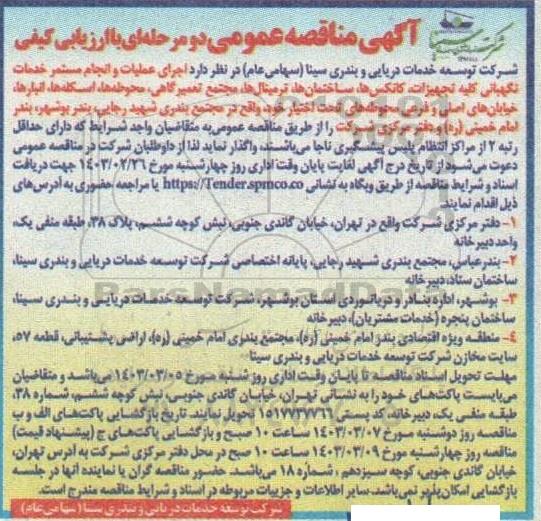 آگهی مناقصه عمومی دو مرحله‌ای با ارزیابی کیفی
شرکت توسعه خدمات دریایی و بندری سینا (سهامی عام) در نظر دارد اجرای عملیات و انجام مستمر خدمات
نگهبانی کلیه تجهیزات، کانکس‌ها، ساختمان‌ها، ترمینال‌ها، مجتمع تعمیرگاهی، محوطه‌ها، اسکله‌ها، انبارها،
خیابان‌های اصلی و فرعی محوطه‌های تحت اختیار خود، واقع در مجتمع بندری شهید رجایی، بندر بوشهر، بندر
امام خمینی (ره) و دفتر مرکزی شرکت را از طریق مناقصه عمومی به متقاضیان واجد شرایط که دارای حداقل
رتبه ۲ از مراکز انتظام پلیس پیشگیری ناجا می‌باشند، واگذار نماید لذا از داوطلبان شرکت در مناقصه عمومی
دعوت می‌شود از تاریخ درج آگهی لغایت پایان وقت اداری روز چهارشنبه مورخ ۱۴۰۳/۰۲/۲۶ جهت دریافت
اسناد و شرایط مناقصه از طریق وبگاه به نشانی https://Tender.spmco.co یا مراجعه حضوری به آدرس‌های
ذیل اقدام نمایند.
۱- دفتر مرکزی شرکت واقع در تهران، خیابان گاندی جنوبی، نبش کوچه ششم، پلاک ۳۸، طبقه منفی یک،
واحد دبیرخانه
۲- بندرعباس، مجتمع بندری شهید رجایی، پایانه اختصاصی شرکت توسعه خدمات دریایی و بندری سینا،
ساختمان ستاد، دبیرخانه
۳- بوشهر، اداره بنادر و دریانوردی استان بوشهر، شرکت توسعه خدمات دریایی و بندری سینا،
ساختمان پنجره (خدمات مشتریان)، دبیرخانه
۴- منطقه ویژه اقتصادی بندر امام خمینی (ره)، مجتمع بندری امام خمینی (ره)، اراضی پشتیبانی، قطعه ۵۷،
سایت مخازن شرکت توسعه خدمات دریایی و بندری سینا
مهلت تحویل اسناد مناقصه تا پایان وقت اداری روز شنبه مورخ ۱۴۰۳/۰۳/۰۵ می‌باشد و متقاضیان
می‌بایست پاکت‌های خود را به نشانی تهران، خیابان گاندی جنوبی، نبش کوچه ششم، شماره ۳۸،
طبقه منفی یک، دبیرخانه، کد پستی ۱۵۱۷۷۳۷۷۶۶ تحویل نمایند. تاریخ بازگشایی پاکت‌های الف و ب
مناقصه روز دوشنبه مورخ ۱۴۰۳/۰۳/۰۷ ساعت ۱۰ صبح و بازگشایی پاکت‌های ج (پیشنهاد قیمت)
مناقصه روز چهارشنبه مورخ ۱۴۰۳/۰۳/۰۹ ساعت ۱۰ صبح در محل دفتر مرکزی شرکت به آدرس تهران،
خیابان گاندی جنوبی، کوچه سیزدهم، شماره ۱۸ می‌باشد. حضور مناقصه گران یا نماینده آنها در جلسه
بازگشایی امکان‌پذیر نمی‌باشد. سایر اطلاعات و جزییات مربوطه در اسناد و شرایط مناقصه مندرج است.
شرکت توسعه خدمات دریایی و بندری سینا (سهامی عام)
ParsNamadData